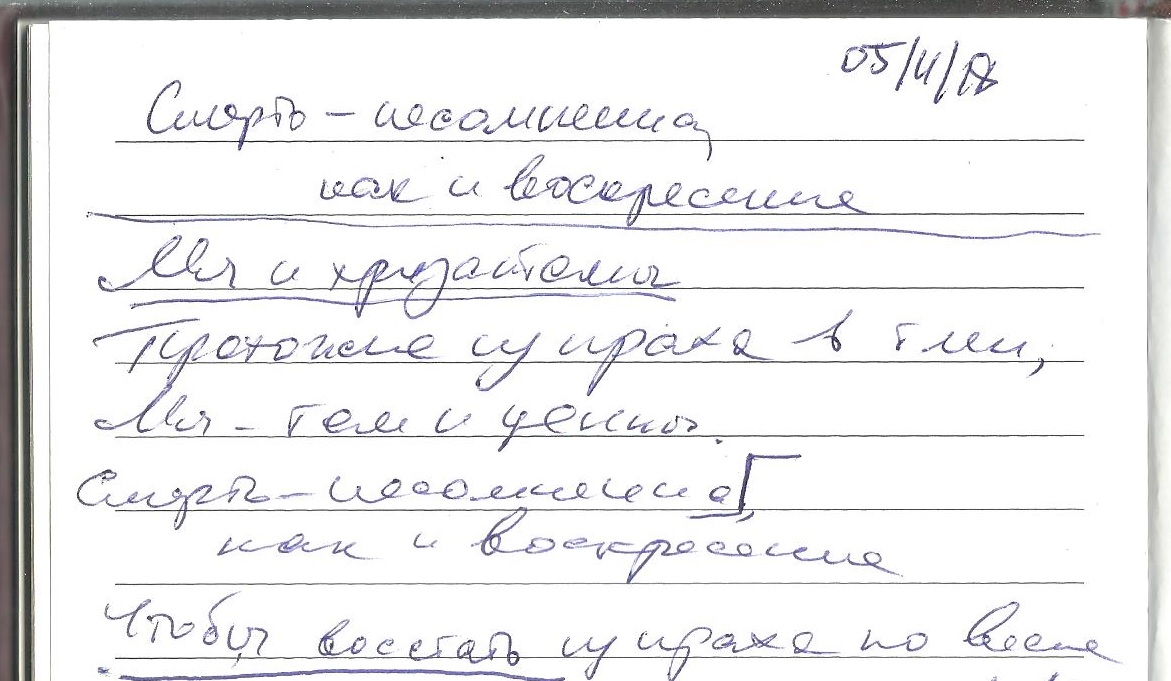 05/11/18
Смерть – несомненна,
как и воскресение
Мы и хризантемы
Прохожие из праха в тлен,
Мы – тем и ценны.
Смерть – несомненна,
как и воскресение
Чтобы восстать из праха по весне